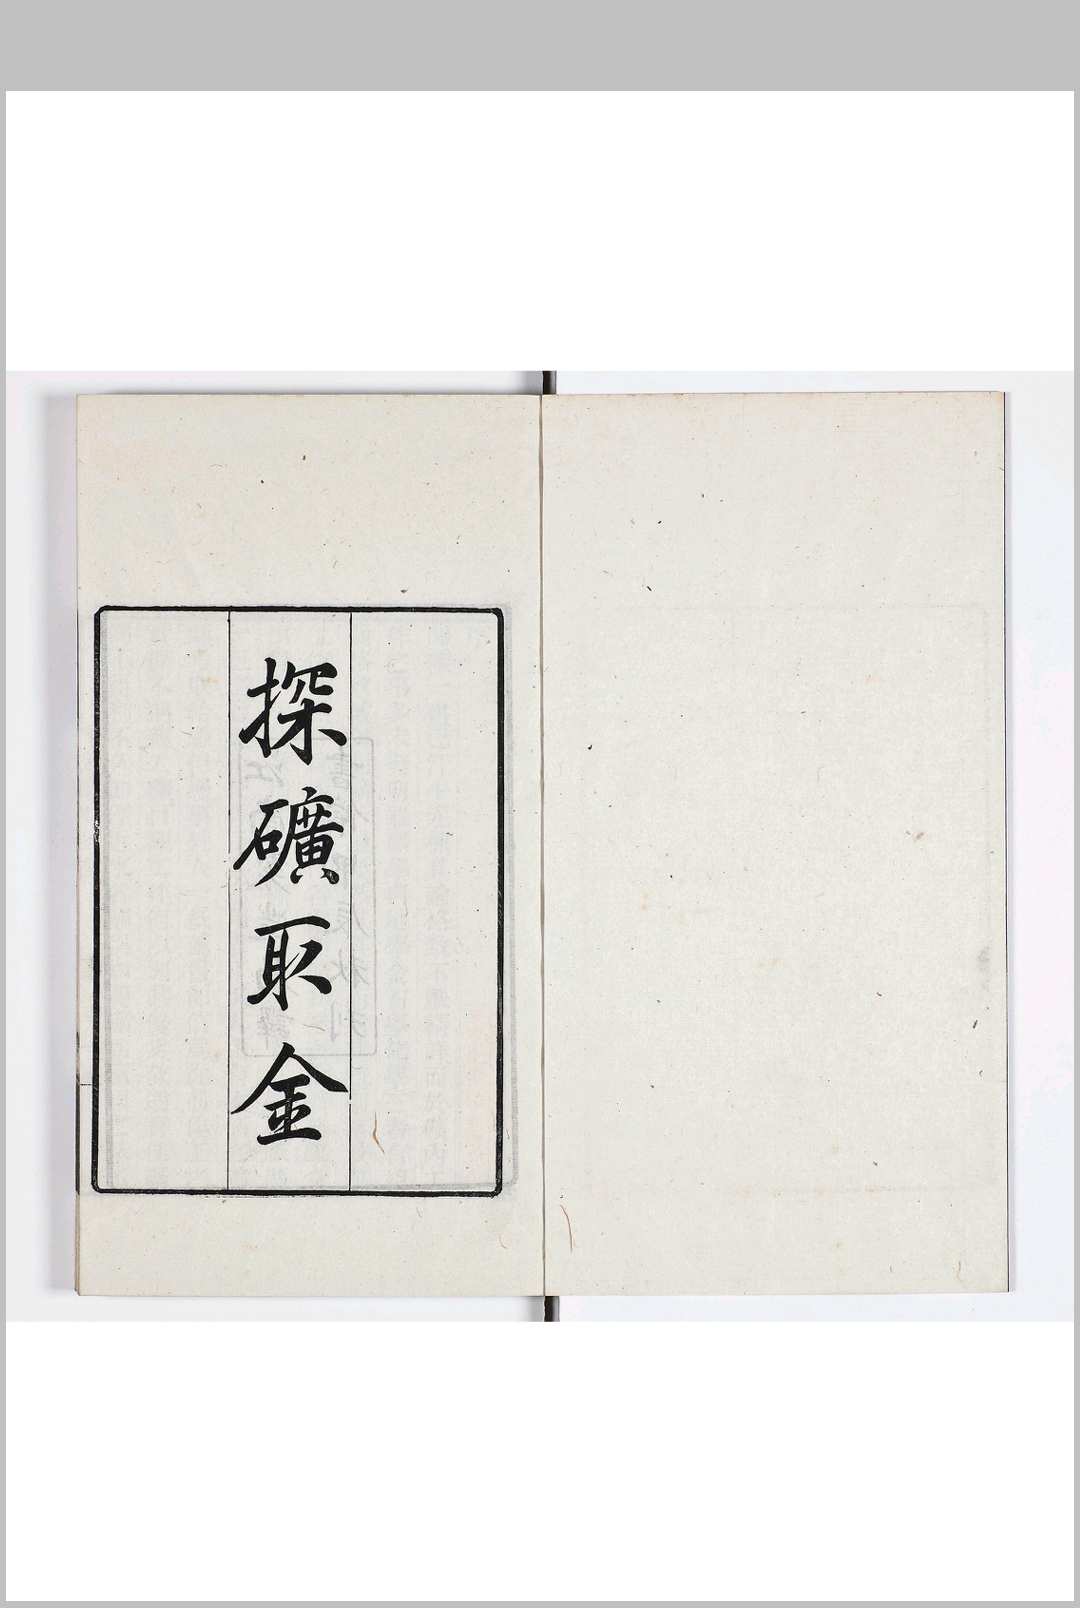 探礦取金